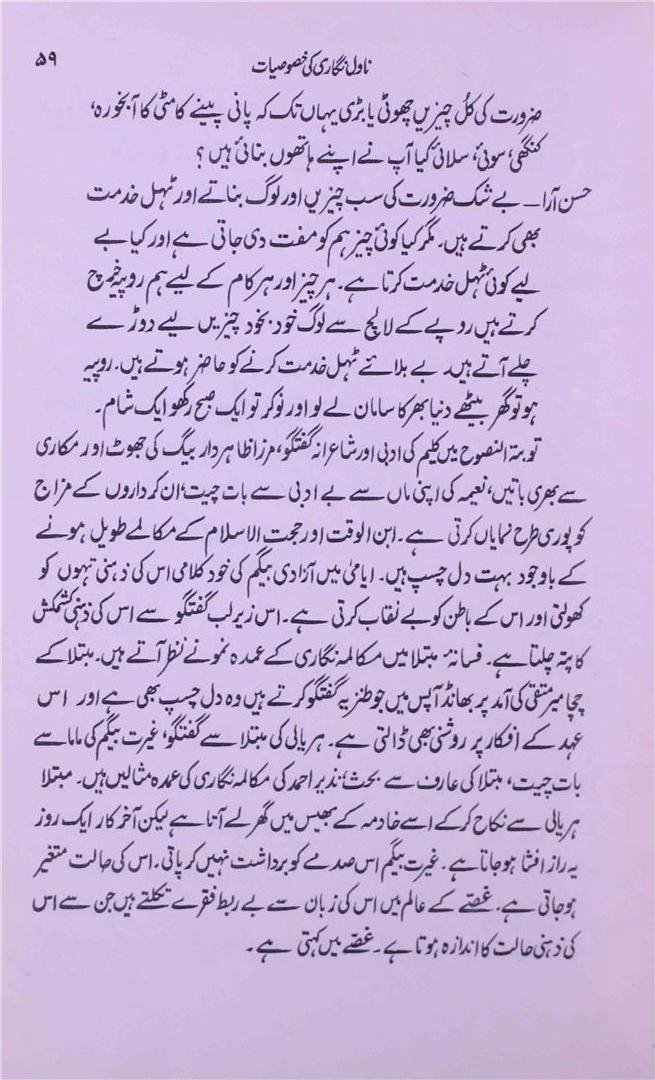 ناول نگاری کی خصوصیات ۵۹
ضرورت کی کُل چیزیں چھوٹی یا بڑی یہاں تک کہ پانی پینے کا مٹی کا آبخورہ،
کنگھی، سوئی، سلائی کیا آپ نے اپنے ہاتھوں بنائی ہیں ؟
حسن آرا۔ بے شک ضرورت کی سب چیزیں اور لوگ بناتے اور ٹہل خدمت
بھی کرتے ہیں۔ مگر کیا کوئی چیز ہم کو مفت دی جاتی ہے اور کیا بے
لیے کوئی ٹہل خدمت کرتا ہے۔ ہر چیز اور ہر کام کے لیے ہم روپیہ خرچ
کرتے ہیں روپے کے لالچ سے لوگ خود بخود چیزیں لیے دوڑے
چلے آتے ہیں۔ بے بلائے ٹہل خدمت کرنے کو حاضر ہوتے ہیں۔ روپیہ
ہو تو گھر بیٹھے دنیا بھر کا سامان لے لو اور نوکر تو ایک صبح رکھو ایک شام۔
توبتہ النصوح میں کلیم کی ادبی اور شاعرانہ گفتگو، مرزا ظاہردار بیگ کی جھوٹ اور مکاری
سے بھری باتیں، نعیمہ کی اپنی ماں سے بے ادبی سے بات چیت، ان کرداروں کے مزاج
کو پوری طرح نمایاں کرتی ہے۔ ابن الوقت اور حجت الاسلام کے مکالمے طویل ہونے
کے باوجود بہت دل چسپ ہیں۔ ایامیٰ میں آزادی بیگم کی خود کلامی اس کی ذہنی تہوں کو
کھولتی اور اس کے باطن کو بے نقاب کرتی ہے۔ اس زیرلب گفتگو سے اس کی ذہنی کشمکش
کا پتہ چلتا ہے۔ فسانۂ مبتلا میں مکالمہ نگاری کے عمدہ نمونے نظر آتے ہیں۔ مبتلا کے
چچا میر متقی کی آمد پر بھانڈ آپس میں جو طنزیہ گفتگو کرتے ہیں وہ دل چسپ بھی ہے اور اس
عہد کے افکار پر روشنی بھی ڈالتی ہے۔ ہریالی کی مبتلا سے گفتگو، غیرت بیگم کی ماما سے
بات چیت، مبتلا کی عارف سے بحث، نذیر احمد کی مکالمہ نگاری کی عمدہ مثالیں ہیں۔ مبتلا
ہریالی سے نکاح کر کے اسے خادمہ کے بھیس میں گھر لے آتا ہے لیکن آخر کار ایک روز
یہ راز افشا ہو جاتا ہے۔ غیرت بیگم اس صدمے کو برداشت نہیں کر پاتی۔ اس کی حالت متغیر
ہو جاتی ہے۔ غصے کے عالم میں اس کی زبان سے بے ربط فقرے نکلتے ہیں جن سے اس
کی ذہنی حالت کا اندازہ ہوتا ہے۔ غصے میں کہتی ہے۔